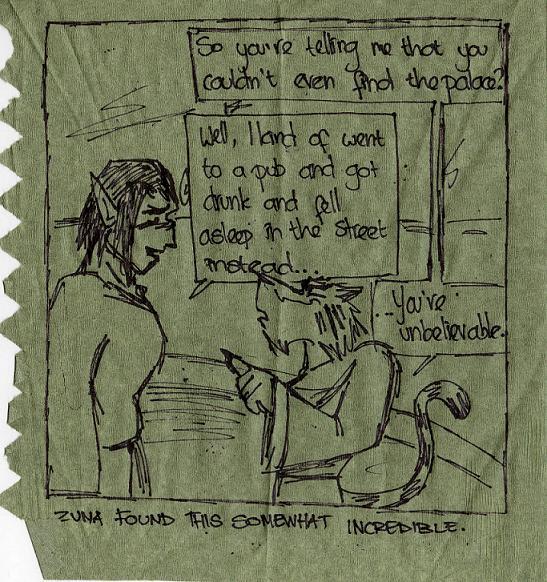 So you're telling me that you
couldn't even find the palace?
Well, I kind of went
to a pub and got
drunk and fell
asleep in the street
instead...
...You're
unbelievable.
ZUNA FOUND THIS SOMEWHAT INCREDIBLE.